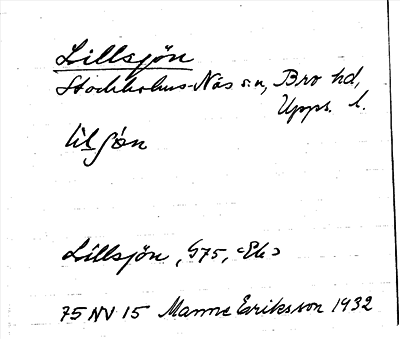 Lillsjön
Stockholms-Näs sn, Bro hd,
Upps. l.
lilsjön
Lillsjön, G75, <Ek>
75 NV 15 Manne Eriksson 1932